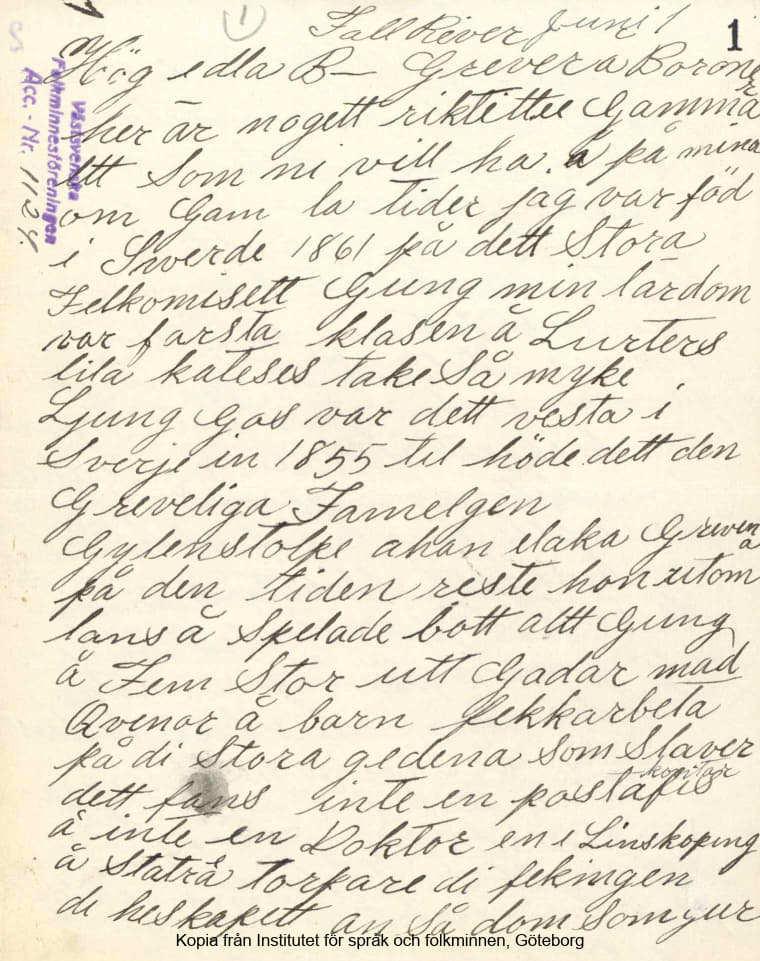 1
Fall River Juni 1
1
Västsvenska
Folkminnesföreningen
Acc.-Nr. 1124.
Hög edla B— Grevera Boroner
her är nogett riktittee Gammā
ltt Som ni vill ha. a på mina
om Gam la tider jag var född
i Swerde 1861 på dett Stora
Felkomisett Gung min lärdom
var farsta klasen å Lurters
lila kateses take Så myke
Ljung Gos var dett vesta i
Sverje in 1855 til höde dett den
Greveliga Famelgen
Gylenstolpe ahan elaka Greven
a
på den tiden reste hon utom
lans å Spelade bott altt Gung
å Fem Stor utt Gadar mad
Qvenor å barn fekkarbeta
på di Stora gedena Som Slaver
kontor
dett fans inte en postafis
å inte en Doktor en i Linskoping
å Statrå torpare di fekingen
di heskapett an Så dom Som yur
Kopia från Institutet för språk och folkminnen, Göteborg